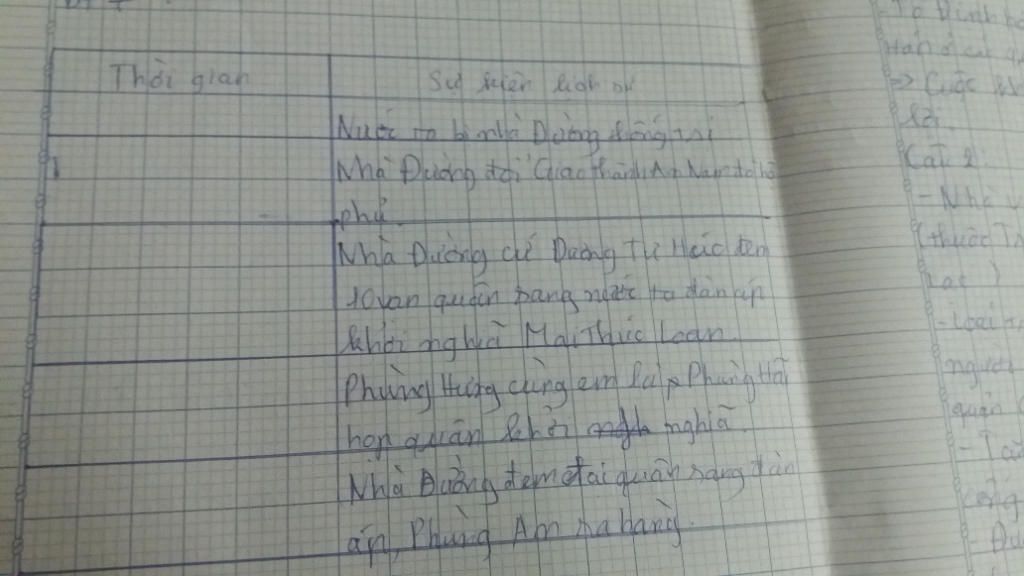 Thời gian
Sự kiện lịch sử
Nước ta bị nhà Đường thống trị
Nhà Đường đổi Giao thành An Nam đô hộ
phủ
Nhà Đường cử Dương Tư Húc đem
10 vạn quân sang nước ta đàn áp
khởi nghĩa Mai Thúc Loan.
Phùng Hưng cùng em là Phùng Hải
họp quân khởi nghĩa.
Nhà Đường đem đại quân sang đàn
áp, Phùng An ra hàng.
=> Cuộc
Câu 2:
- Nhà
(thuộc
Lạc )
- Loại
người
quân